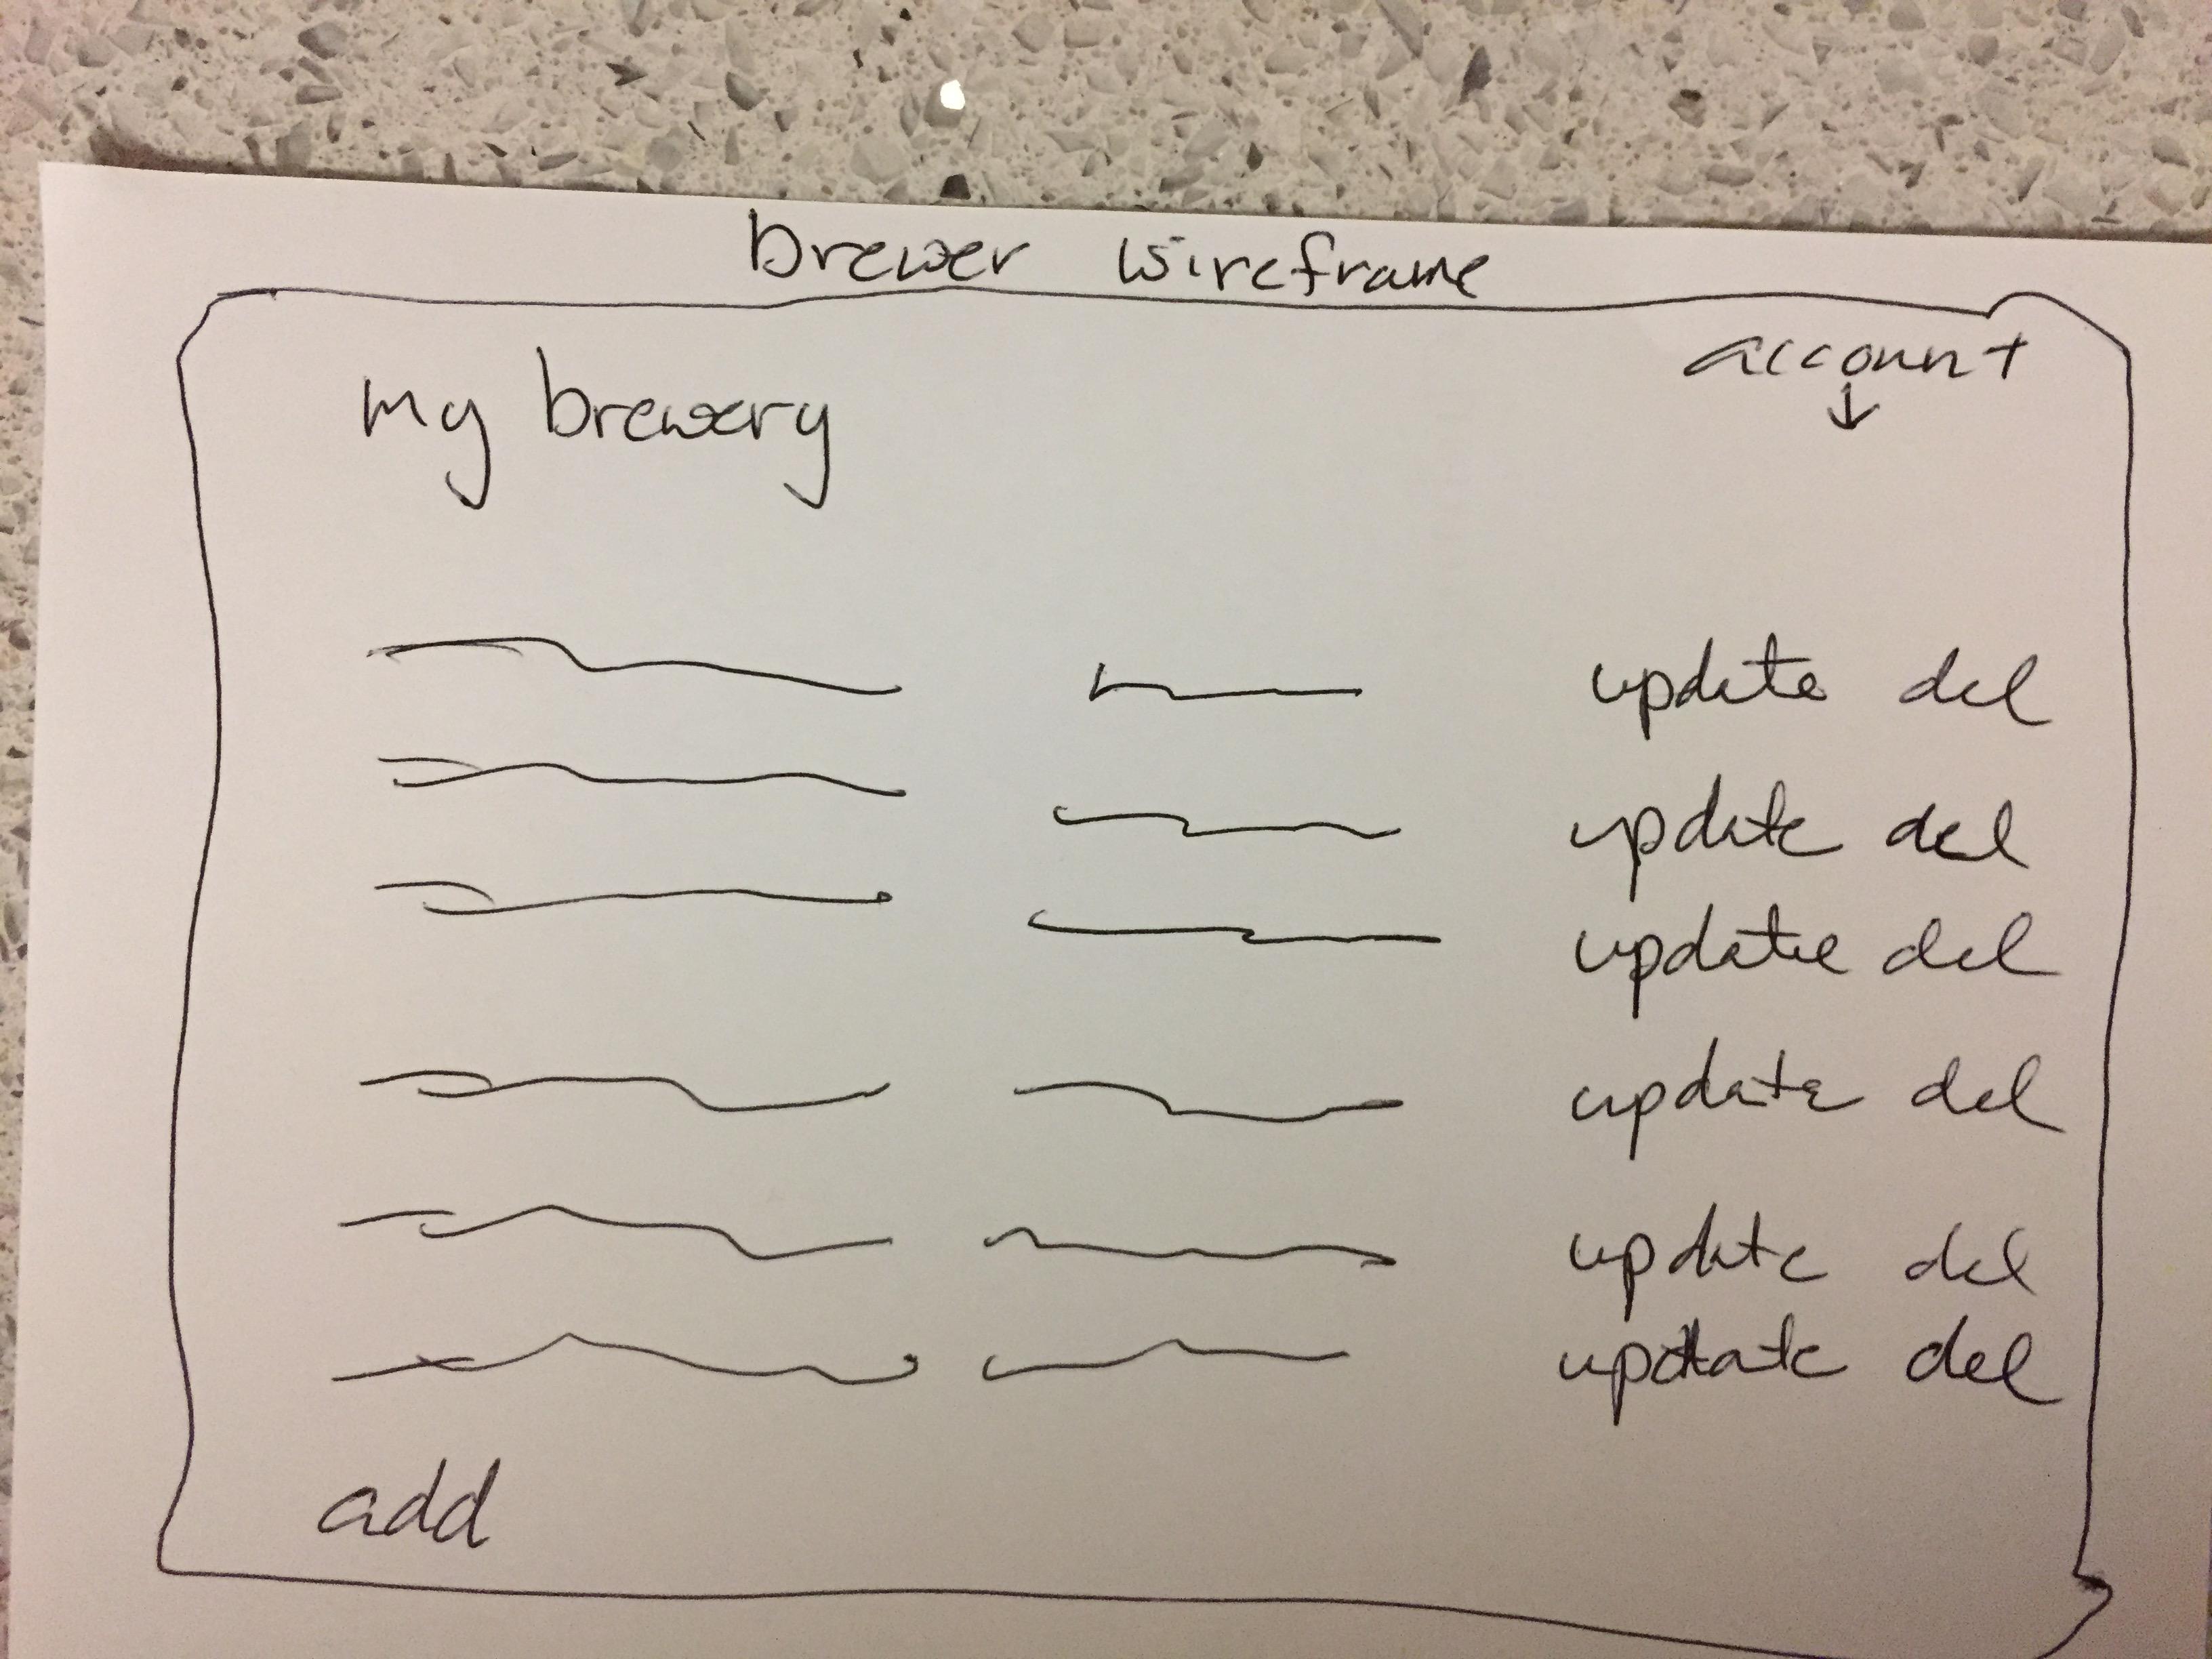 brewer wireframe
account
my brewery
update del
update del
update del
update del
update del
update del
add